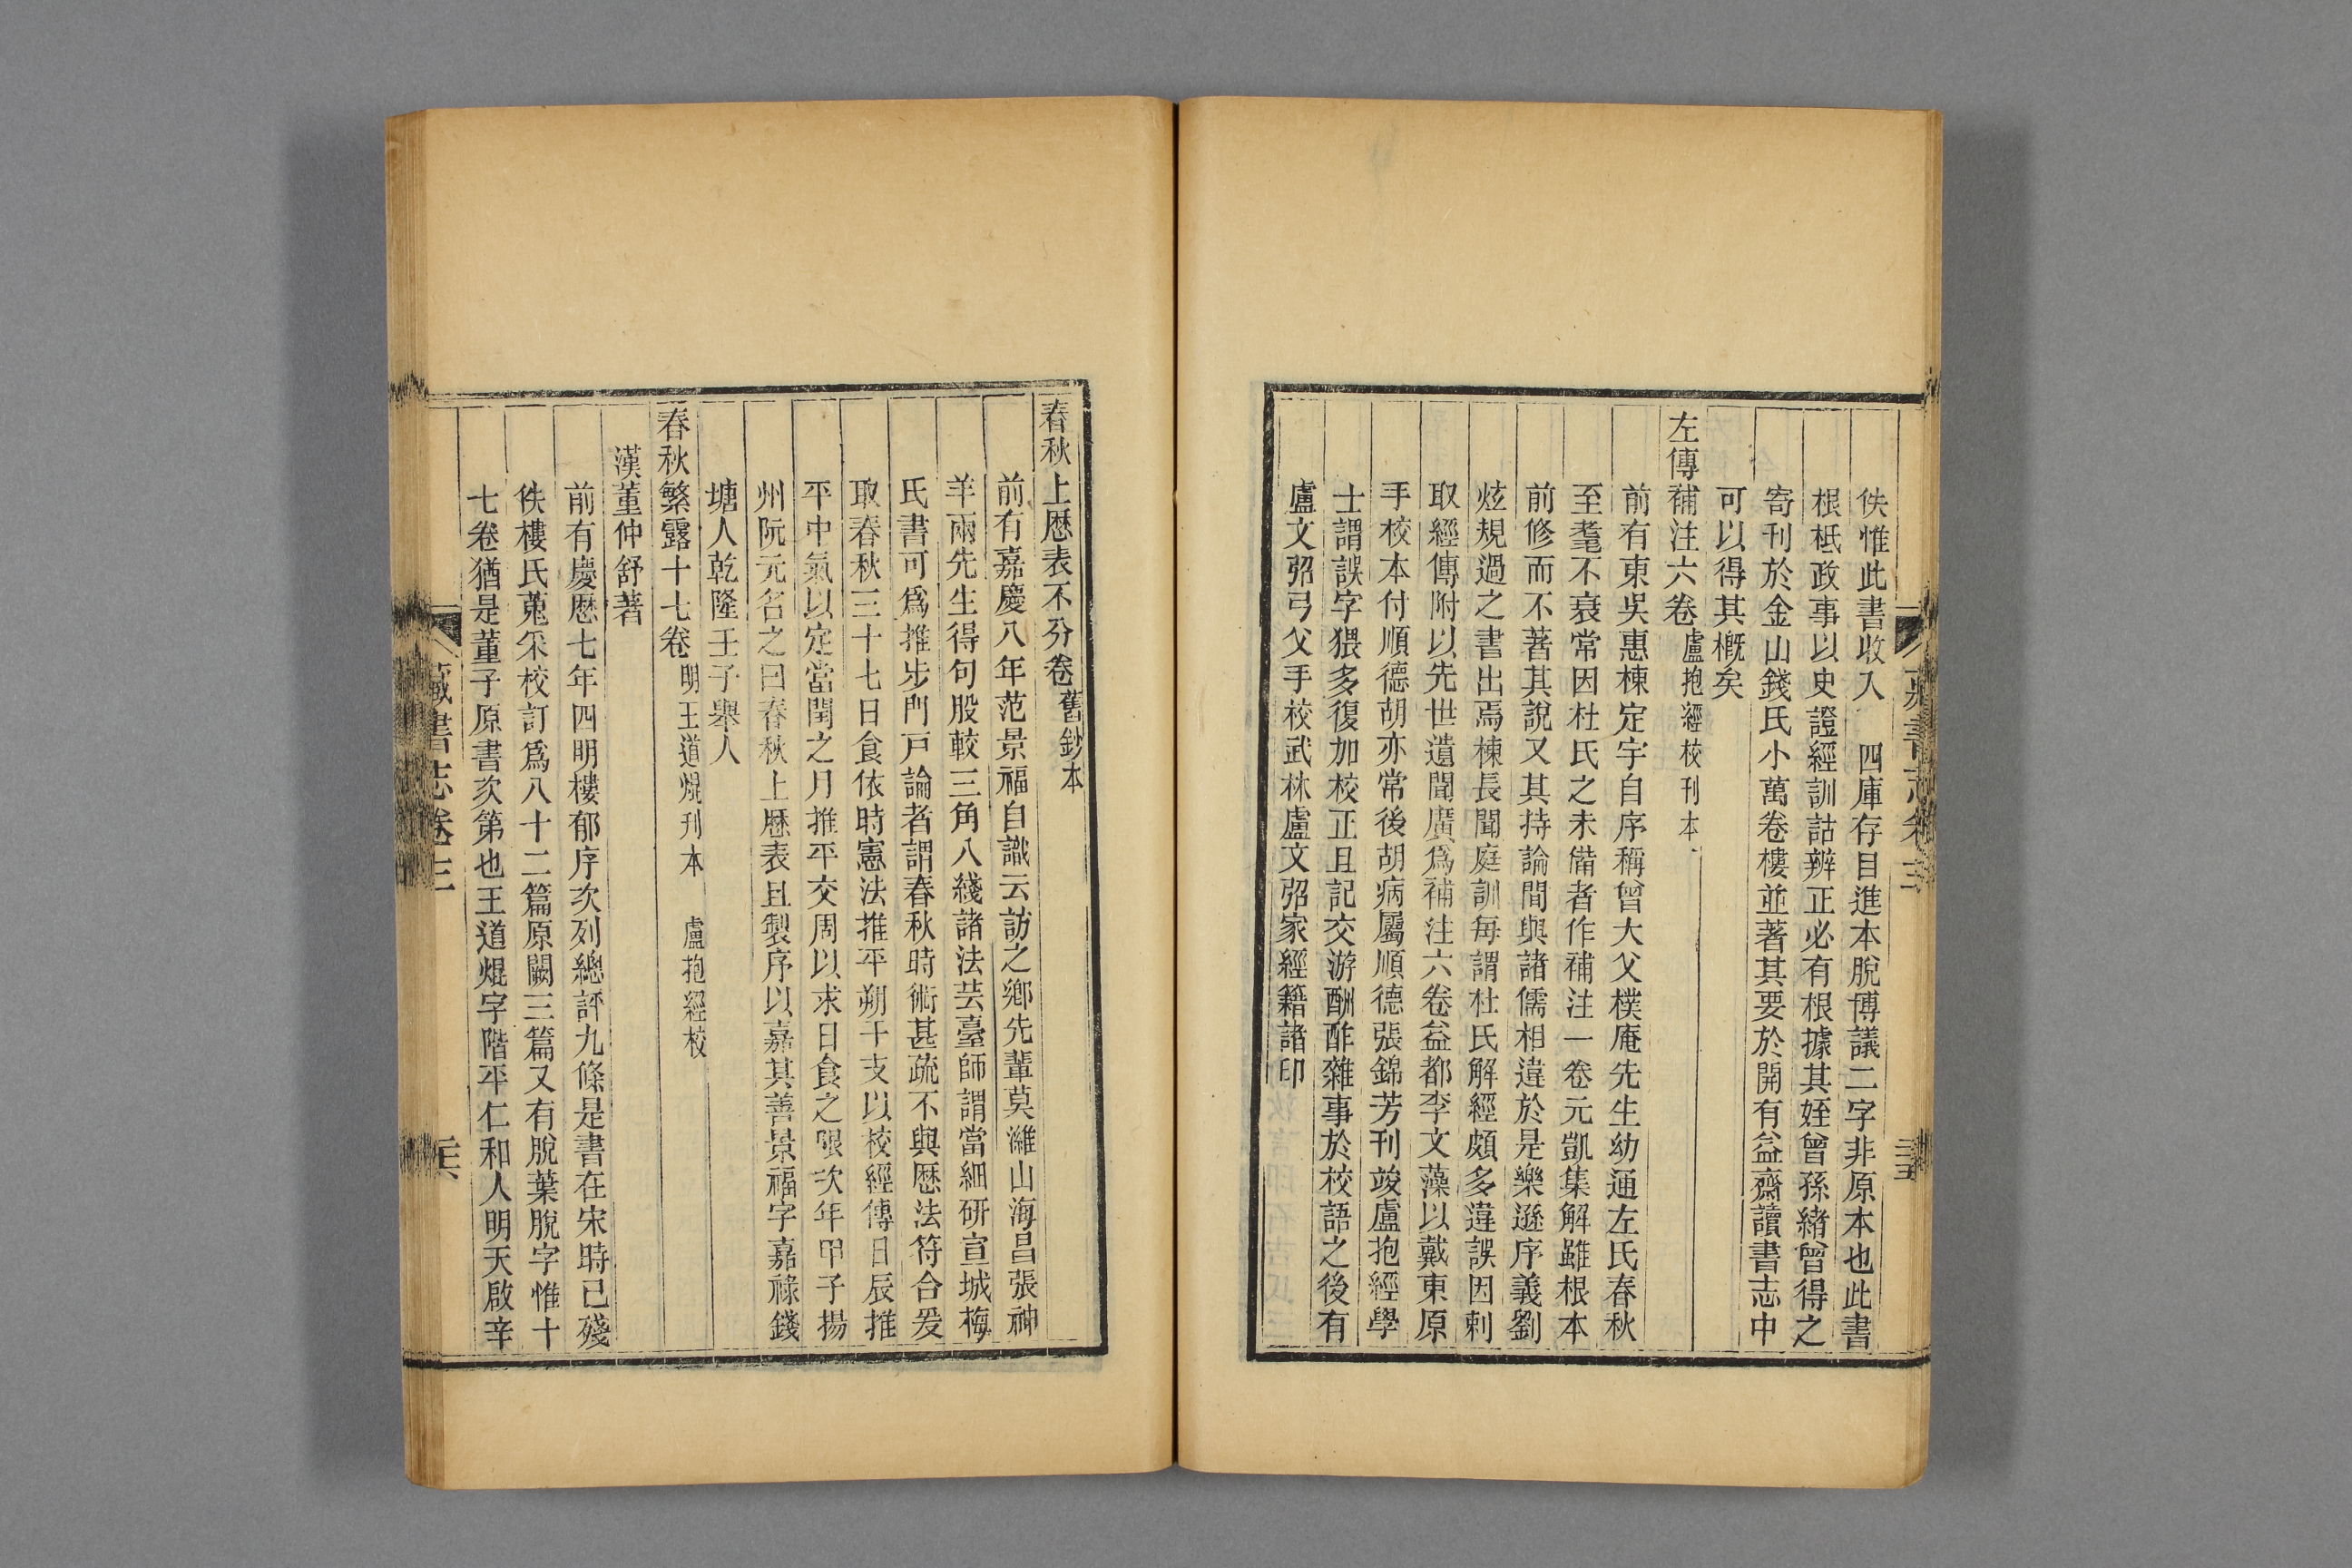 佚惟此書收入　四庫存目進本脫博議二字非原本也此書
根柢政事以史證經訓詁辨正必有根據其姪曾孫緒曾得之
寄刊於金山錢氏小萬卷樓並著其要於開有益齋讀書志中
可以得其概矣
左傳補注六卷盧抱經校刊本
前有東吳惠棟定宇自序稱曾大父樸庵先生幼通左氏春秋
至耄不衰常因杜氏之未備者作補注一卷元凱集解雖根本
前修而不著其說又其持論間與諸儒相違於是樂遜序義劉
炫規過之書出焉棟長聞庭訓每謂杜氏解經頗多違誤因刺
取經傳附以先世遺聞廣爲補注六卷益都李文藻以戴東原
手校本付順德胡亦常後胡病屬順德張錦芳刊竣盧抱經學
士謂誤字猥多復加校正且記交游酬酢雜事於校語之後有
盧文弨弓父手校武林盧文弨家經籍諸印
春秋上厯表不分卷舊鈔本
前有嘉慶八年范景福自識云訪之鄉先輩莫濰山海昌張神
羊兩先生得句股較三角八綫諸法芸臺師謂當細研宣城梅
氏書可爲推步門戶論者謂春秋時術甚疏不與厯法符合爰
取春秋三十七日食依時憲法推平朔干支以校經傳日辰推
平中氣以定當閏之月推平交周以求日食之限次年甲子揚
州阮元名之曰春秋上厯表且製序以嘉其善景福字嘉祿錢
塘人乾隆壬子舉人
春秋繁露十七卷明王道焜刊本　盧抱經校
漢董仲舒著
前有慶厯七年四明樓郁序次列總評九條是書在宋時已殘
佚樓氏蒐采校訂爲八十二篇原闕三篇又有脫葉脫字惟十
七卷猶是董子原書次第也王道焜字階平仁和人明天啟辛
藏書志卷三